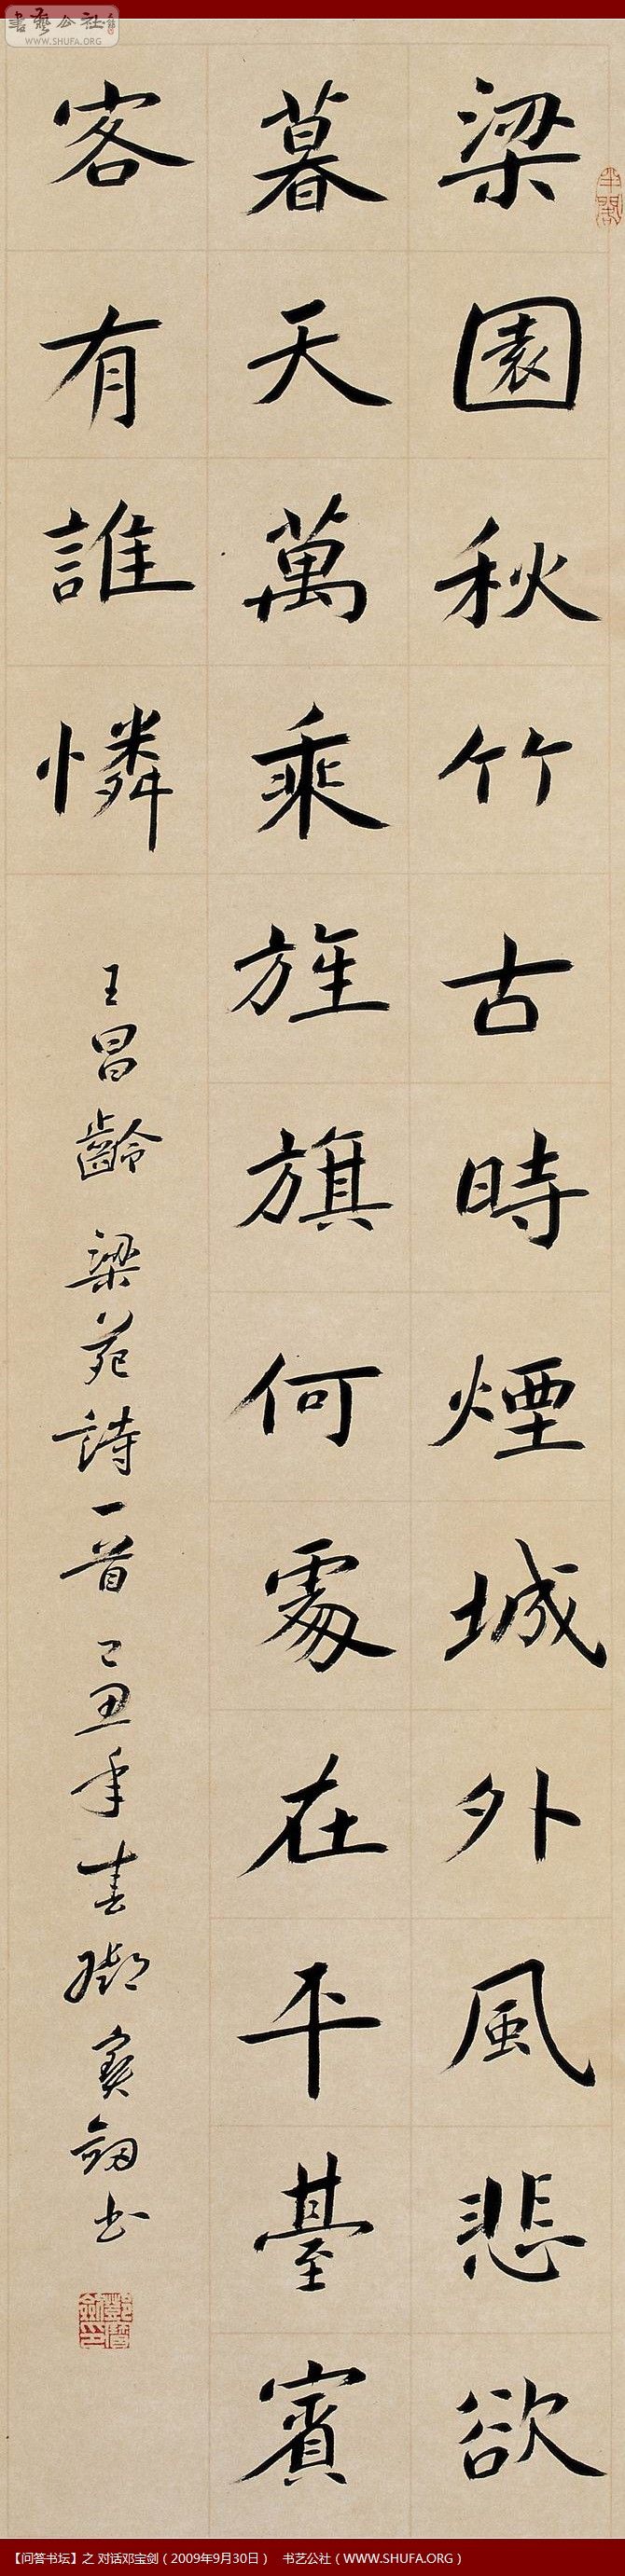 書藝公社
WWW.SHUFA.ORG
梁園秋竹古時煙城外風悲欲
暮天萬乘旌旗何處在平臺賓
客有誰憐
王昌齡梁苑詩一首己丑年春鄧寶劍書
【问答书坛】之 对话邓宝剑（2009年9月30日） 书艺公社（WWW.SHUFA.ORG）